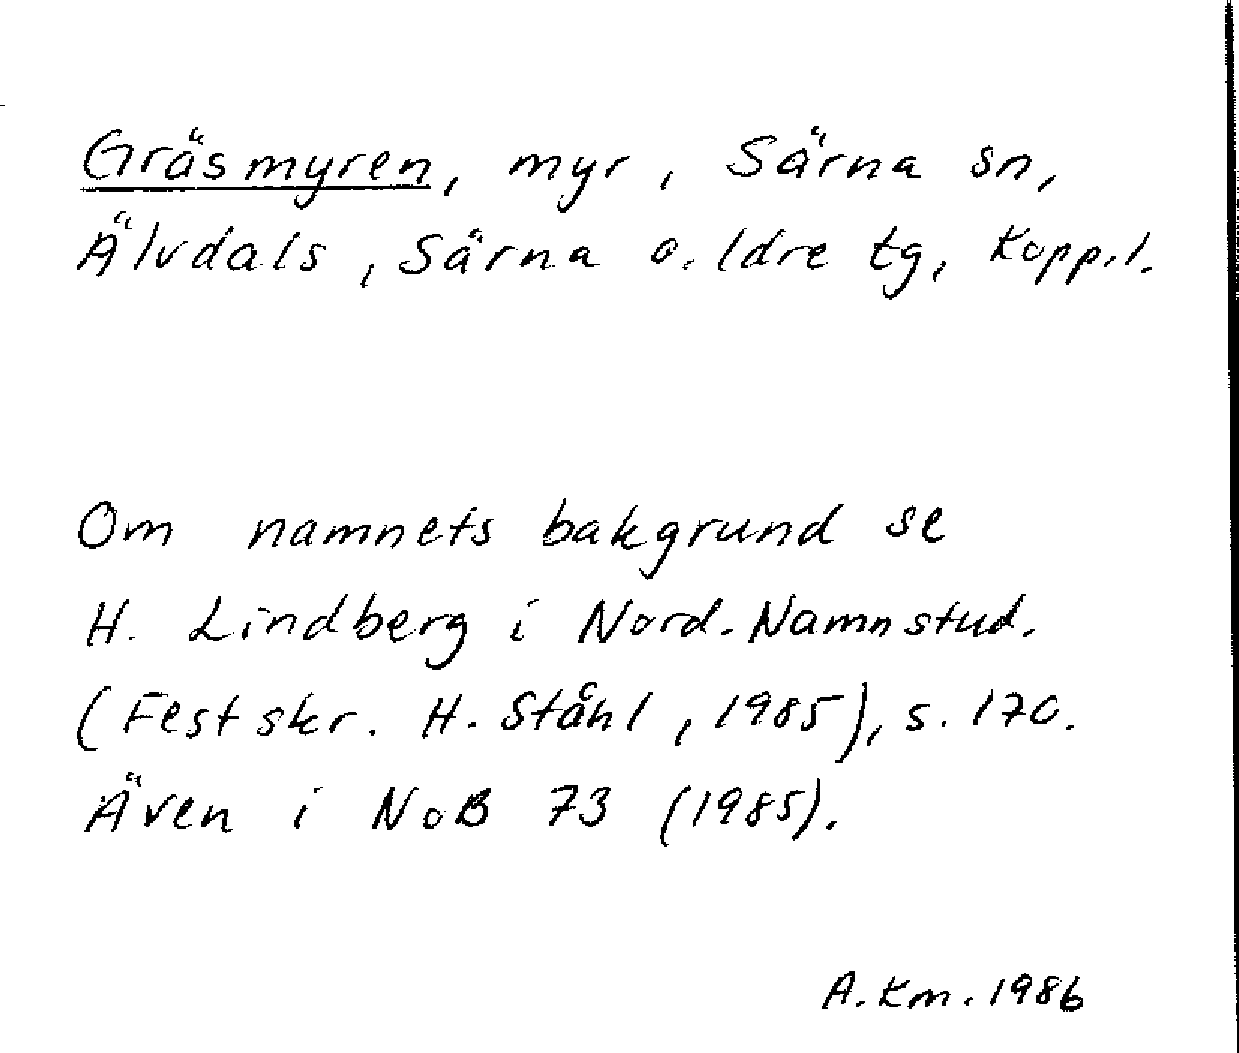 Gräsmyren, myr, Särna sn,
Älvdals, Särna o. Idre tg, Kopp.l.
Om namnets bakgrund se
H. Lindberg i Nord. Namnstud.
(Festskr. H. Ståhl, 1985), s. 170.
Även i NoB 73 (1985).
A. Km. 1986